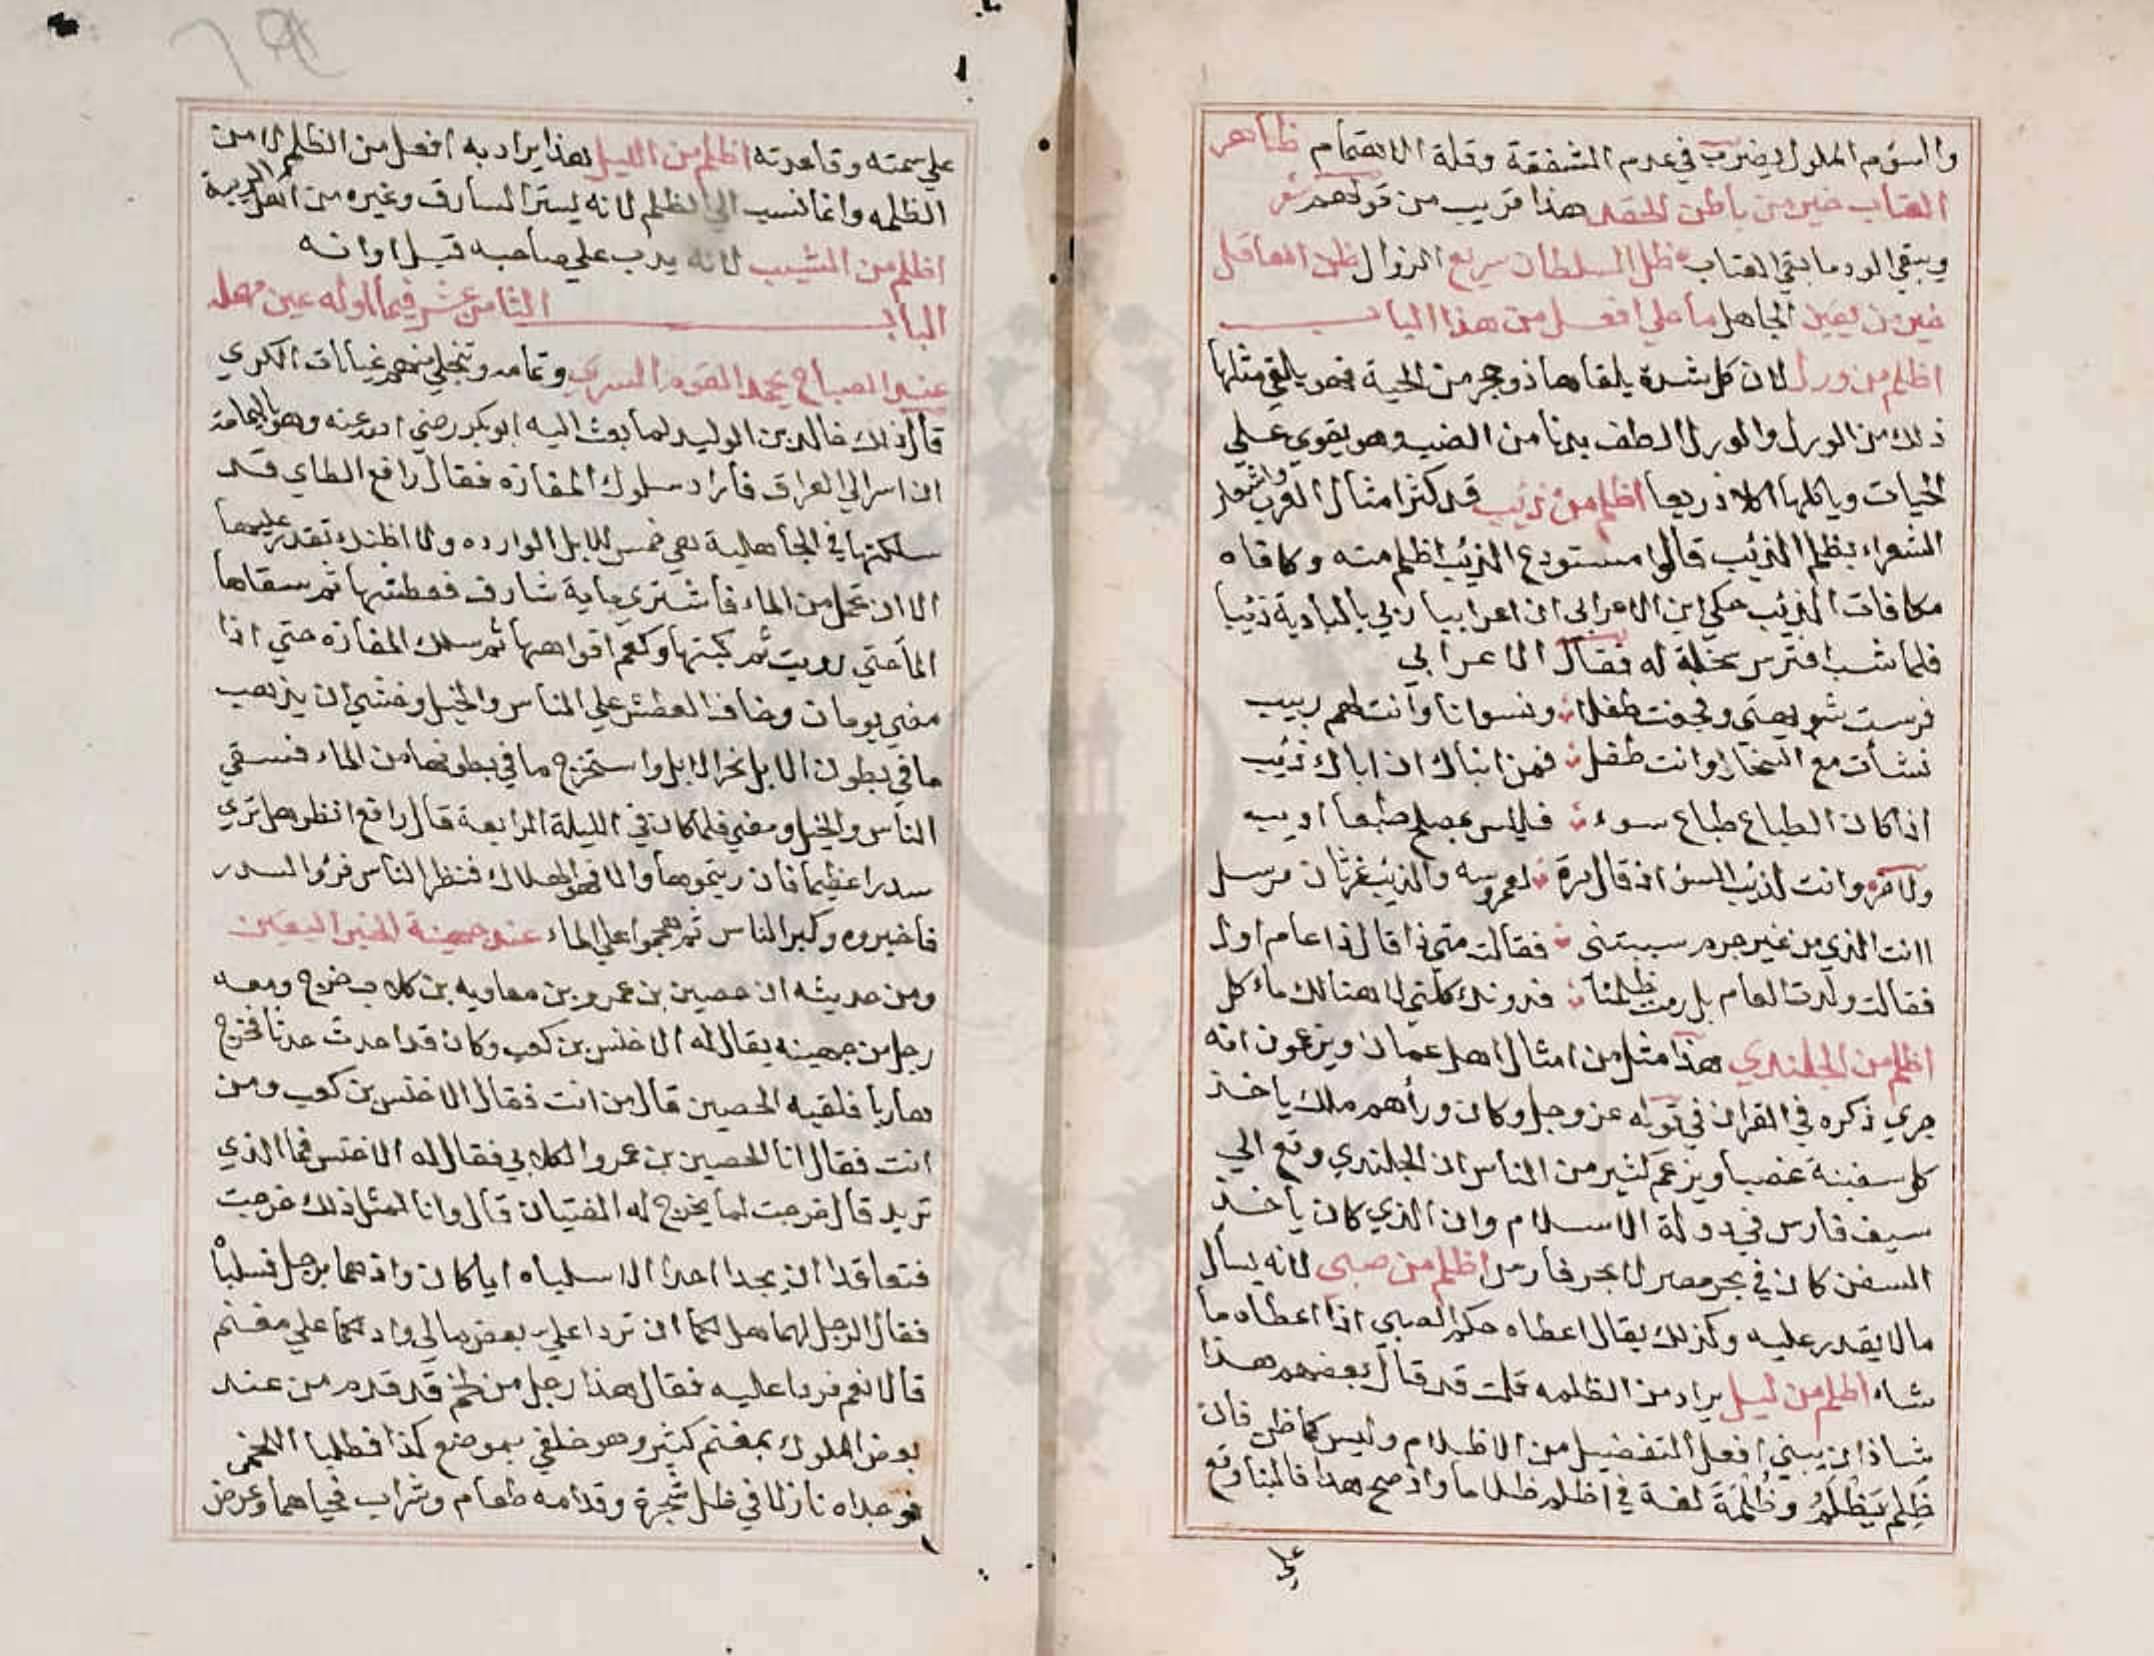 والسؤم الملول يضرب في عدم الشفقة وقلة الاهتمام ظاهر
العتاب خير من باطن الحقد هذا قريب من قولهم شعر
ويبقي الود ما بقي العتاب ظل السلطان سريع الزوال ظن العاقل
خير من يقين الجاهل ما علي افعل من هذا الباب
اظلم من ورل لان كل شدة يلقاها ذو جحر من الحية فهو يلقي مثلها
ذلك من الورل والورل الطف بدنا من الضب وهو يقوي علي
الحيات وياكلها اكلا ذريعا اظلم من ذئيب قد كثر امثال العرب واشعار
الشعراء بظلم الذئيب قالوا مستودع الذئيب اظلم منه وكافاه
مكافات الذئيب حكي ابن الاعرابي ان اعرابيا ربي بالبادية ذئيبا
فلما شب افترس سخلة له فقال الاعرابي
فرست شويهتي وفجعت طفلا ونسوانا وانت لهم ربيب
نشأت مع السخال وانت طفل فمن انباك ان اباك ذئيب
اذا كان الطباع طباع سوء فليس بمصلح طبعا اديب
ولاخر وانت لذئيب السؤ اذ قال مرة لعمروسه والذئيب غرثان مرسل
اانت الذي من غير جرم سببتني فقالت متي ذا قال ذا عام اول
فقالت ولدت العام بل رمت ظلمنا فدونك كلني لا هنالك ماكل
اظلم من الجلندي هذا مثل من امثال اهل عمان ويزعمون انه
جري ذكره في القران في قوله عز وجل وكان ورأهم ملك ياخذ
كل سفينة غصبا ويزعم كثير من الناس ان الجلندي وقع الي
سيف فارس في دولة الاسلام وان الذي كان ياخذ
السفن كان في بحر مصر لا بحر فارس اظلم من صبي لانه يسأل
مالا يقدر عليه وكذلك يقال اعطاه حكم الصبي اذا اعطاه ما
شاء اظلم من ليل يراد من الظلمه قلت قد قال بعضهم هذا
شاذ ان يبني افعل التفضيل من الاظلام وليس كما ظن فان
ظَلِم يَظْلَمُ وظُلْمَةَ لغة في اظلم ظلاما واذ صح هذا فالبنا وقع
علي
علي سمته وقاعدته اظلم من الليل هذا يراد به افعل من الظلم لا من
الظلمه وانما نسب الي الظلم لانه يستر السارق وغيره من اهل الريبة
اظلم من الشيب لانه يدب علي صاحبه قبل اوانه
الباب الثامن عشر فيما اوله عين مهمله
عند الصباح يحمد القوم السري وتمامه وتنجلي عنهم غيابات الكري
قال ذلك خالد بن الوليد لما بعث اليه ابو بكر رضي الله عنه وهو باليمامة
ان اسر الي العراق فاراد سلوك المفازة فقال رافع الطاي قد
سلكتها في الجاهلية هي خمس للابل الوارده ولا اظنك تقدر عليهما
الا ان تحمل من الماء فاشتري ماية شارف فعطشها ثم سقاها
الما حتي رويت ثم كبتها وكعم افواهها ثم سلك المفازه حتي اذا
مضي يومان وخاف العطش علي الناس والخيل وخشي ان يذهب
ما في بطون الابل نحر الابل واستخرج ما في بطونها من الماء فسقي
الناس والخيل ومضي فلما كان في الليلة الرابعة قال رافع انظروا هل تري
سدرا عظيما فان ريتموها والا فهو الهلاك فنظر الناس فرؤا السدر
فاخبروه وكبر الناس ثم هجموا علي الماء عند جهينة الخبر اليقين
ومن حديثه ان حصين بن عمرو بن معاويه بن كلاب خرج ومعه
رجل من جهينه يقال له الاخنس بن كعب وكان قد احدث حدثا فخرج
هاربا فلقيه الحصين قال من انت فقال الاخنس بن كعب ومن
انت فقال انا الحصين بن عمرو الكلابي فقال له الاخنس فما الذي
تريد قال خرجت لما يخرج له الفتيان قال وانا لمثل ذلك خرجت
فتعاقدا ان يجدا احدا الا سلباه ايا كان وانهما برجل فسلباه
فقال الرجل لهما هل لكما ان تردا علي بعض مالي وادلكما علي مغنم
قالا نعم فردا عليه فقال هذا رجل من لخم قد قدم من عند
بعض الملوك بمغنم كثير وهو خلفي بموضع كذا فطلبا اللخمي
فوجداه نازلا في ظل شجرة وقدامه طعام وشراب فحياهما وعرض